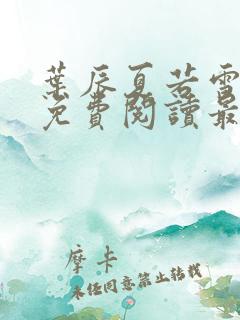 葉辰夏若雪
免費閱讀最
摩卡
未经同意禁止转载